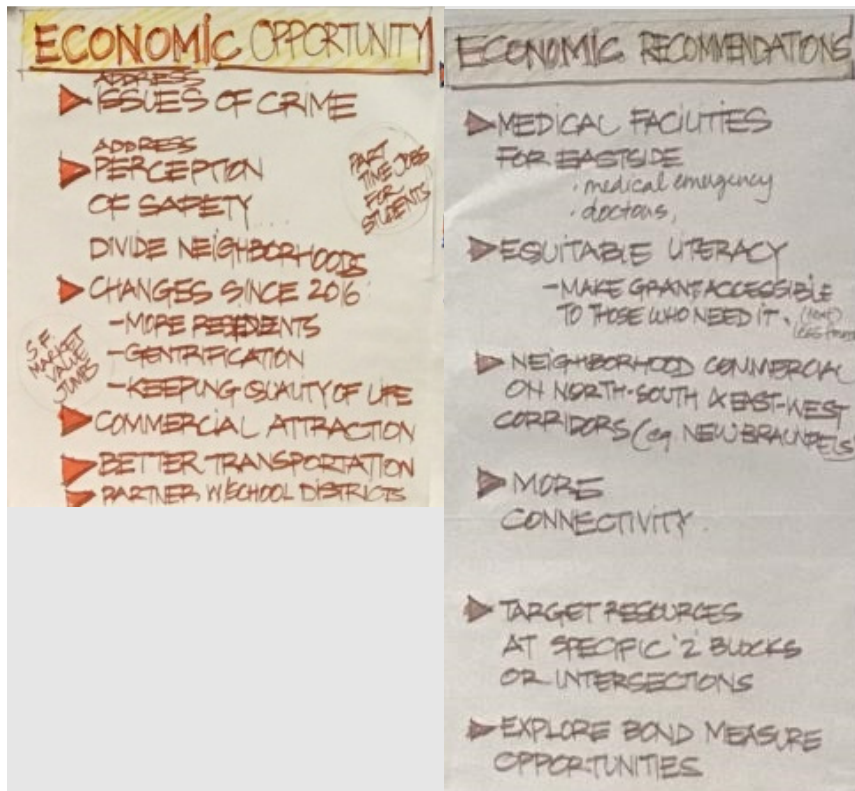 ECONOMIC OPPORTUNITY
ADDRESS
ISSUES OF CRIME
ADDRESS
PERCEPTION
OF SAFETY
DIVIDE NEIGHBORHOODS
PART
TIME JOBS
FOR
STUDENTS
CHANGES SINCE 2016
-MORE RESIDENTS
-GENTRIFICATION
-KEEPING QUALITY OF LIFE
S.F.
MARKET
VALUE
JUMBS
COMMERCIAL ATTRACTION
BETTER TRANSPORTATION
PARTNER W/SCHOOL DISTRICTS
ECONOMIC RECOMMENDATIONS
MEDICAL FACILITIES
FOR EASTSIDE
· medical emergency
· doctors,
EQUITABLE LITERACY
-MAKE GRANT ACCESSIBLE
TO THOSE WHO NEED IT.
NEIGHBORHOOD COMMERCIAL
ON NORTH-SOUTH & EAST-WEST
CORRIDORS (eg. NEW BRAUNFELS)
MORE
CONNECTIVITY.
TARGET RESOURCES
AT SPECIFIC '2' BLOCKS
OR INTERSECTIONS
EXPLORE BOND MEASURE
OPPORTUNITIES